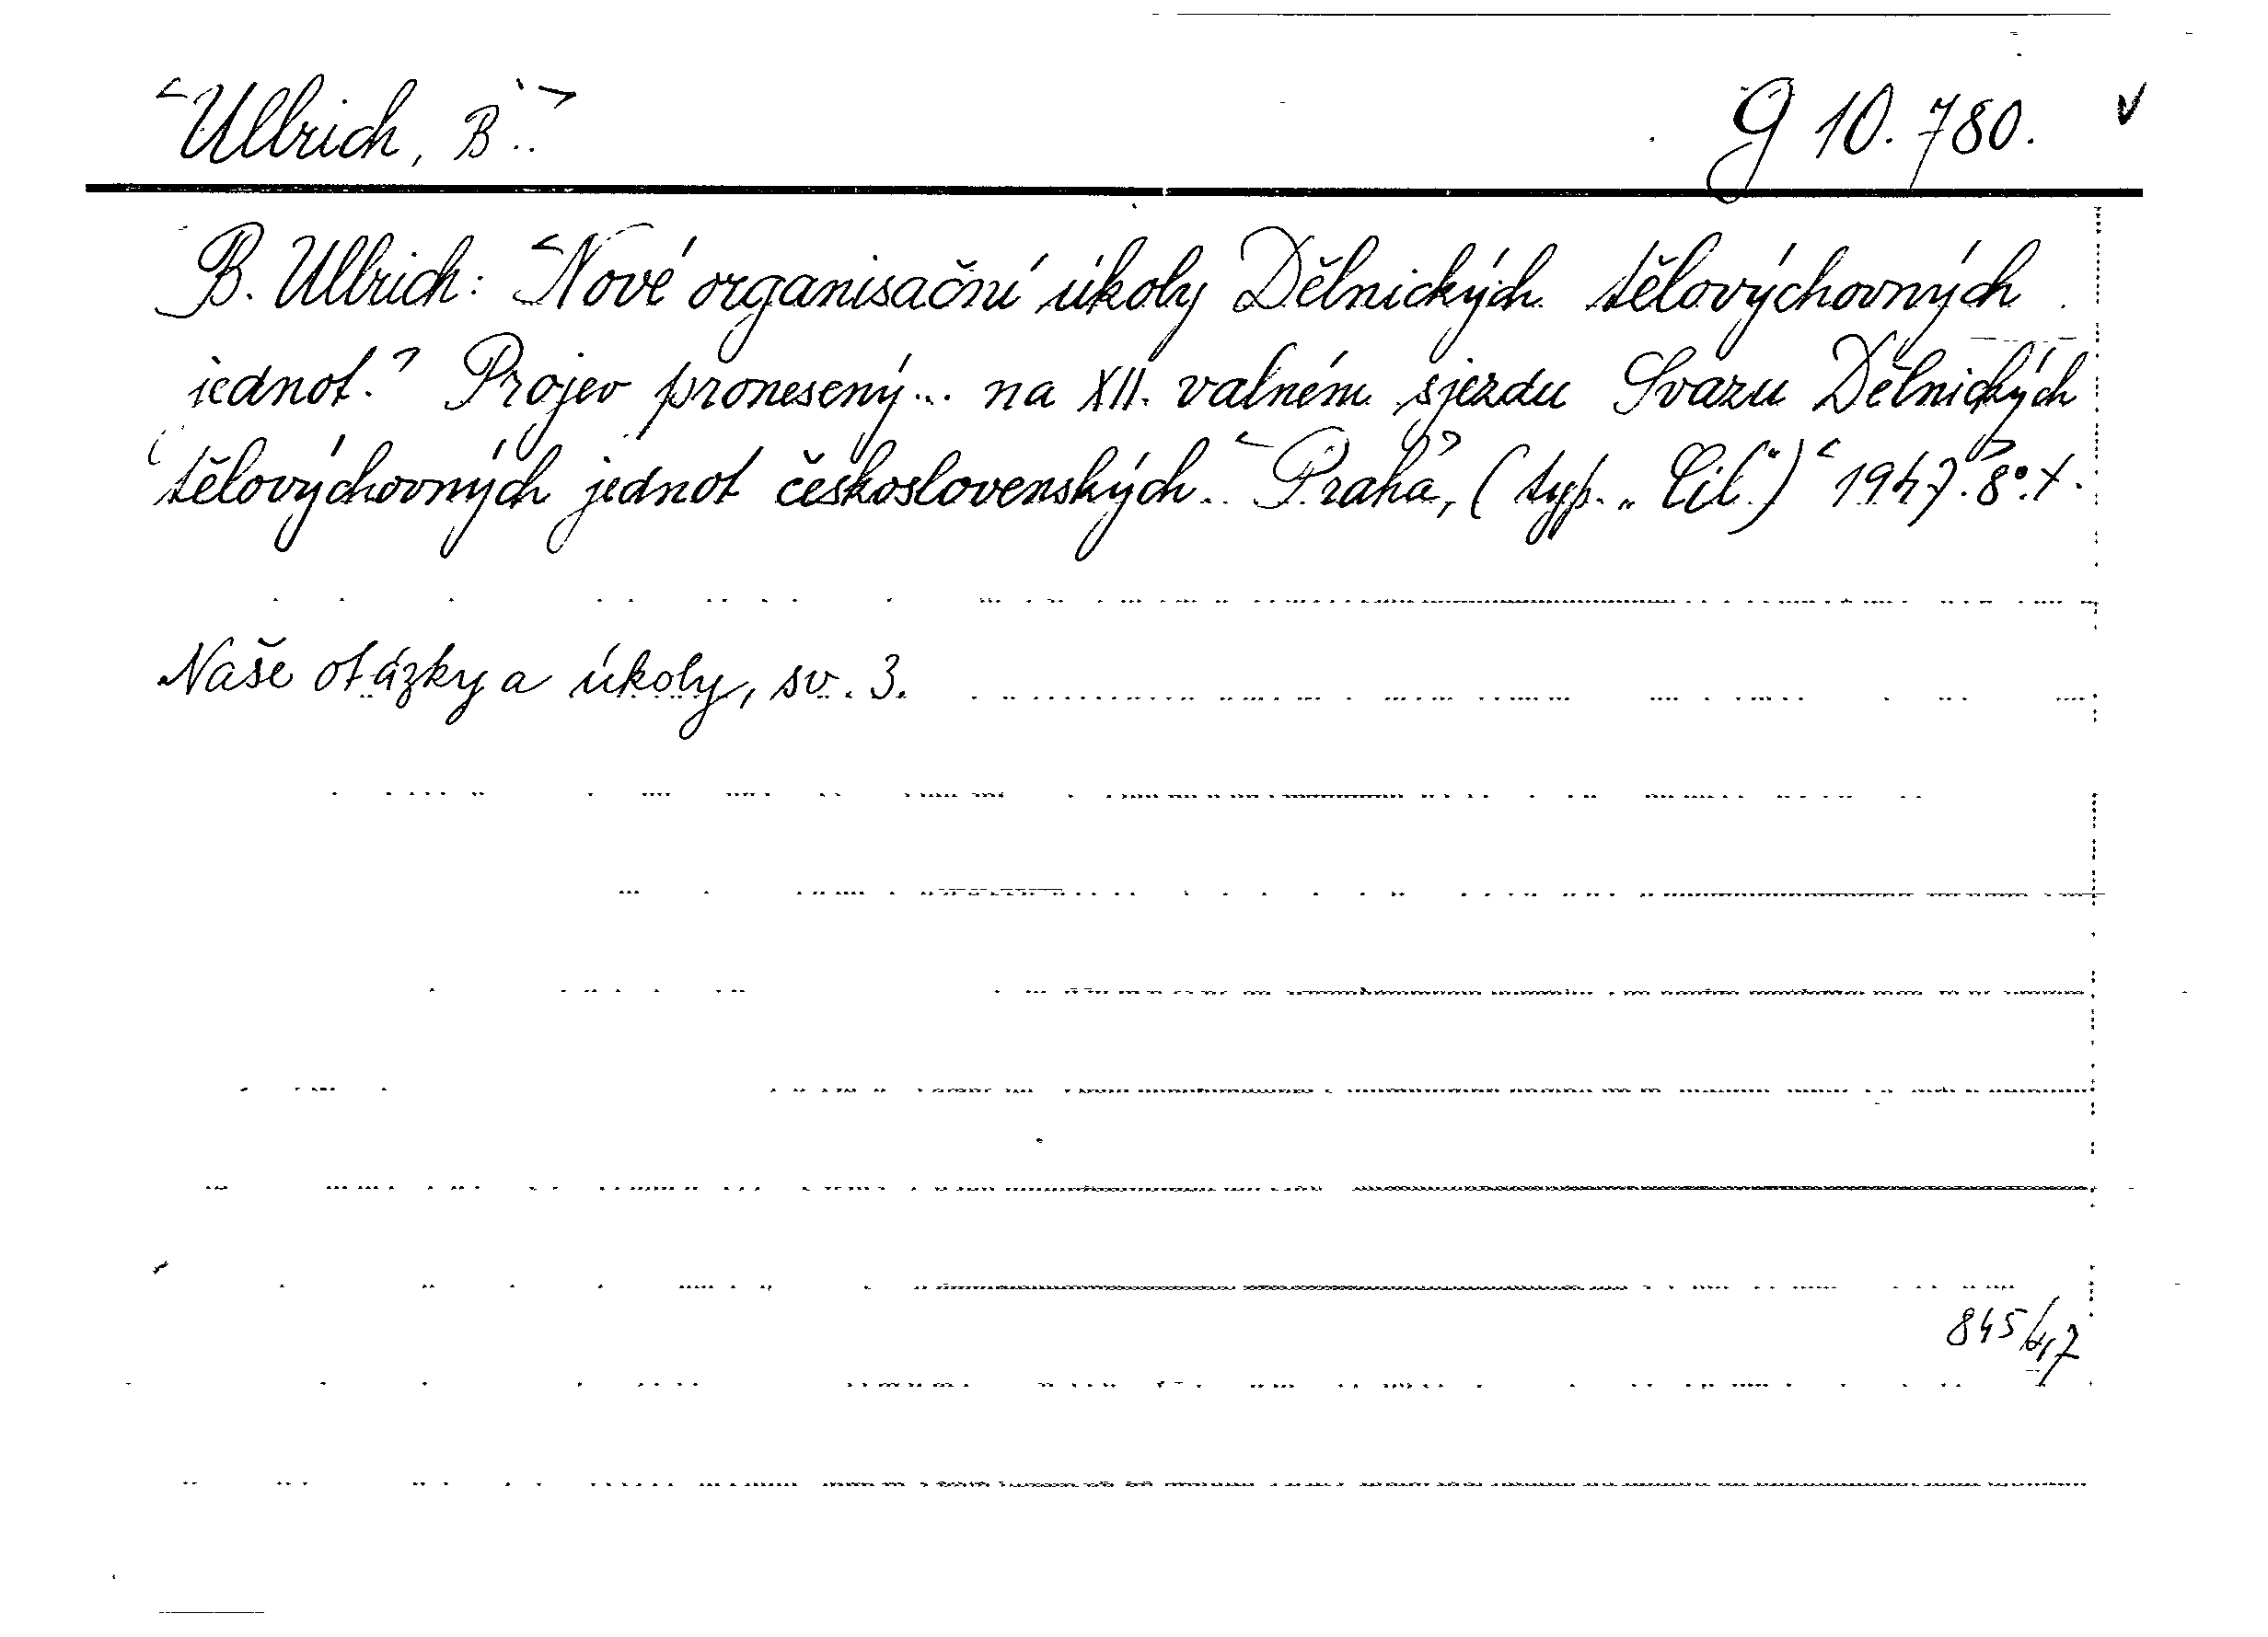 <Ullrich, B..> G 10.780. v
B. Ullrich: <Nové organisační úkoly Dělnických tělovýchovných
jednot.> Projev pronesený... na XII. valném sjezdu Svazu Dělnických
tělovýchovných jednot československých. <Praha>, (typ. „Cíl“) <1947.> 8°. t.
Naše otázky a úkoly, sv. 3.
845/47